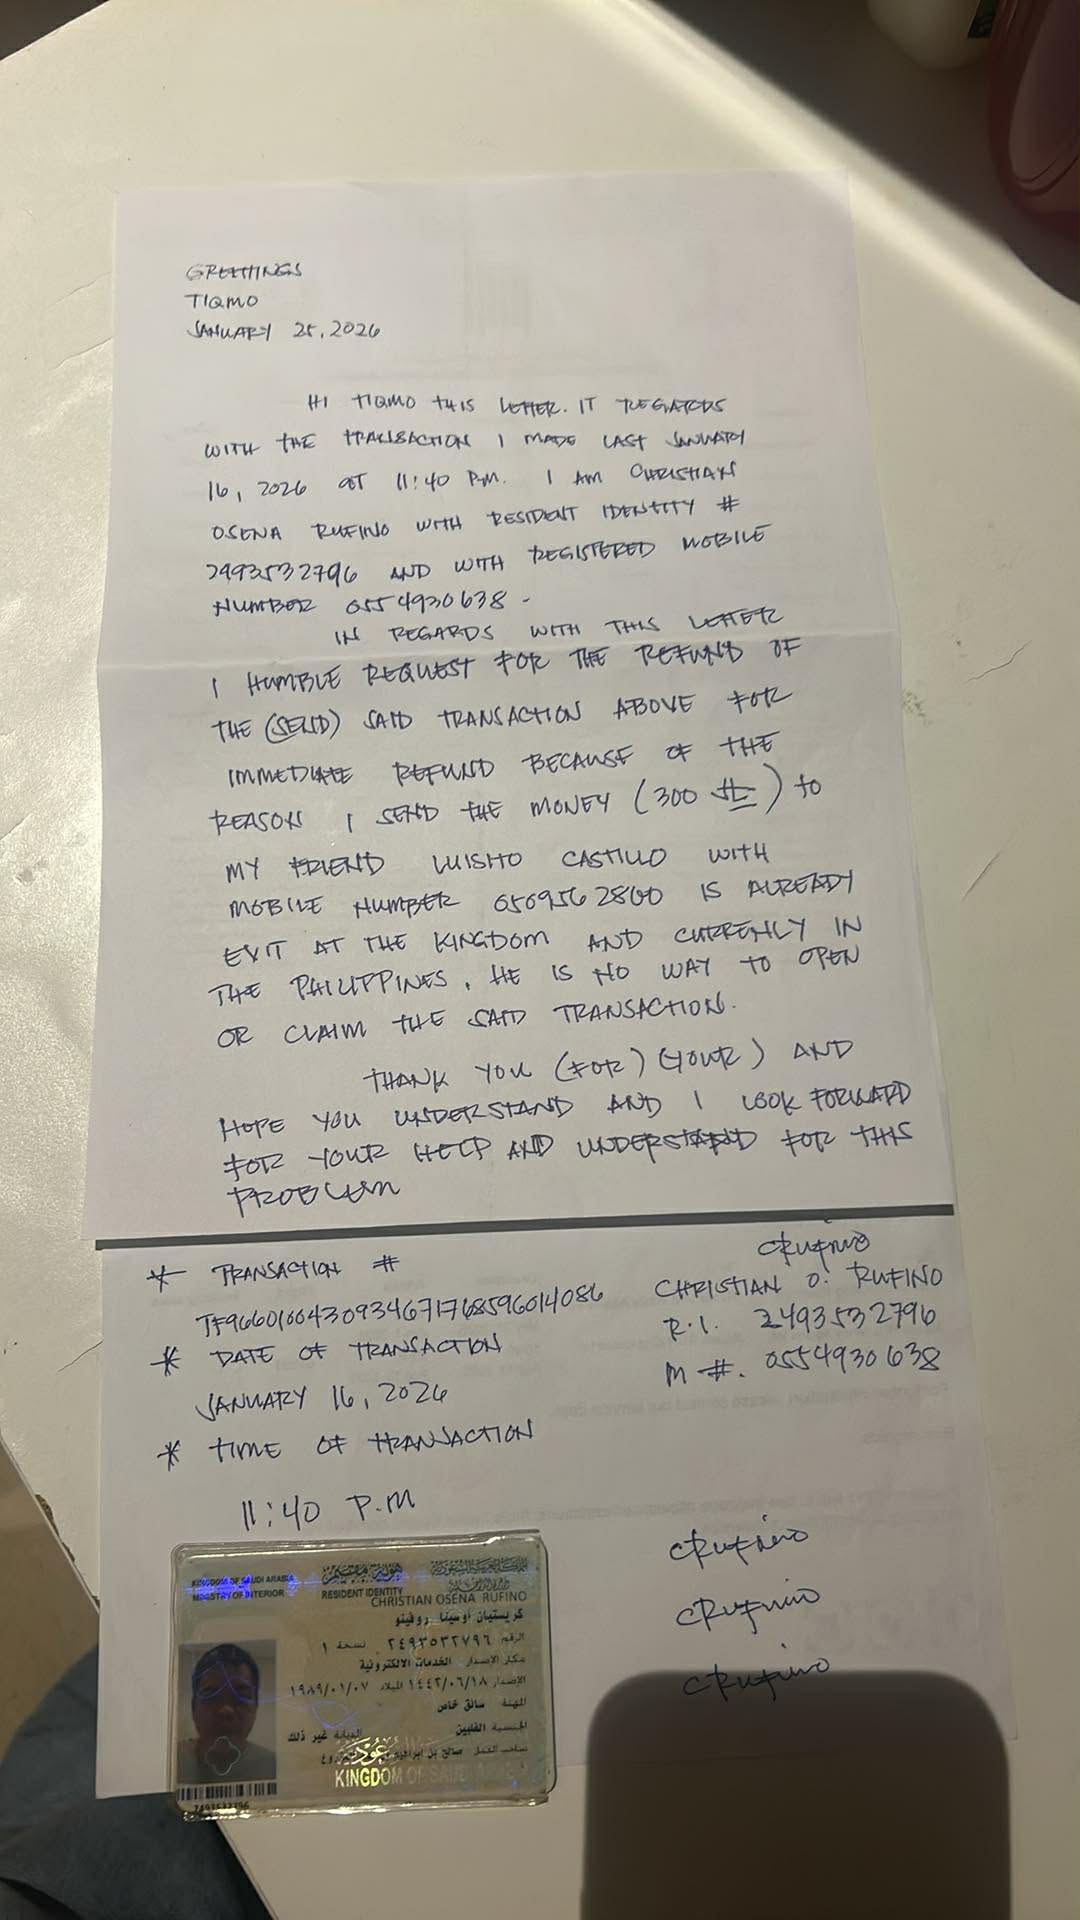 GREETINGS
TIQMO
JANUARY 25, 2026
HI TIQMO THIS LETTER. IT REGARDS
WITH THE TRANSACTION I MADE LAST JANUARY
16, 2026 AT 11:40 P.M. I AM CHRISTIAN
OSENA RUFINO WITH RESIDENT IDENTITY #
2493532796 AND WITH REGISTERED MOBILE
NUMBER 0554930638.
IN REGARDS WITH THIS LETTER
I HUMBLE REQUEST FOR THE REFUND OF
THE (SEND) SAID TRANSACTION ABOVE FOR
IMMEDIATE REFUND BECAUSE OF THE
REASON I SEND THE MONEY (300 ) TO
MY FRIEND LUISITO CASTILLO WITH
MOBILE NUMBER 0509562800 IS ALREADY
EXIT AT THE KINGDOM AND CURRENLY IN
THE PHILIPPINES, HE IS NO WAY TO OPEN
OR CLAIM THE SAID TRANSACTION.
THANK YOU (FOR) (YOUR) AND
HOPE YOU UNDERSTAND AND I LOOK FORWARD
FOR YOUR HELP AND UNDERSTAND FOR THIS
PROBLEM
* TRANSACTION #
TF9660100430934671768596014086
* DATE OF TRANSACTION
JANUARY 16, 2026
* TIME OF TRANSACTION
11:40 P.M
CRufino
CHRISTIAN O. RUFINO
R.I. 2493532796
M #. 0554930638
CRufino
CRufino
CRufino
KINGDOM OF SAUDI ARABIA
MINISTRY OF INTERIOR
هوية مقيم
RESIDENT IDENTITY
CHRISTIAN OSENA RUFINO
كريستيان اوسينا روفينو
الرقم ٢٤٩٣٥٣٢٧٩٦ نسخة ١
مكان الإصدار الخدمات الالكترونية
الإصدار ١٤٤٢/٠٦/١٨ الميلاد ١٩٨٩/٠١/٠٧
المهنة سائق خاص
الجنسية الفلبين الديانة غير ذلك
صاحب العمل صالح بن ابراهيم
KINGDOM OF SAUDI
2493532796